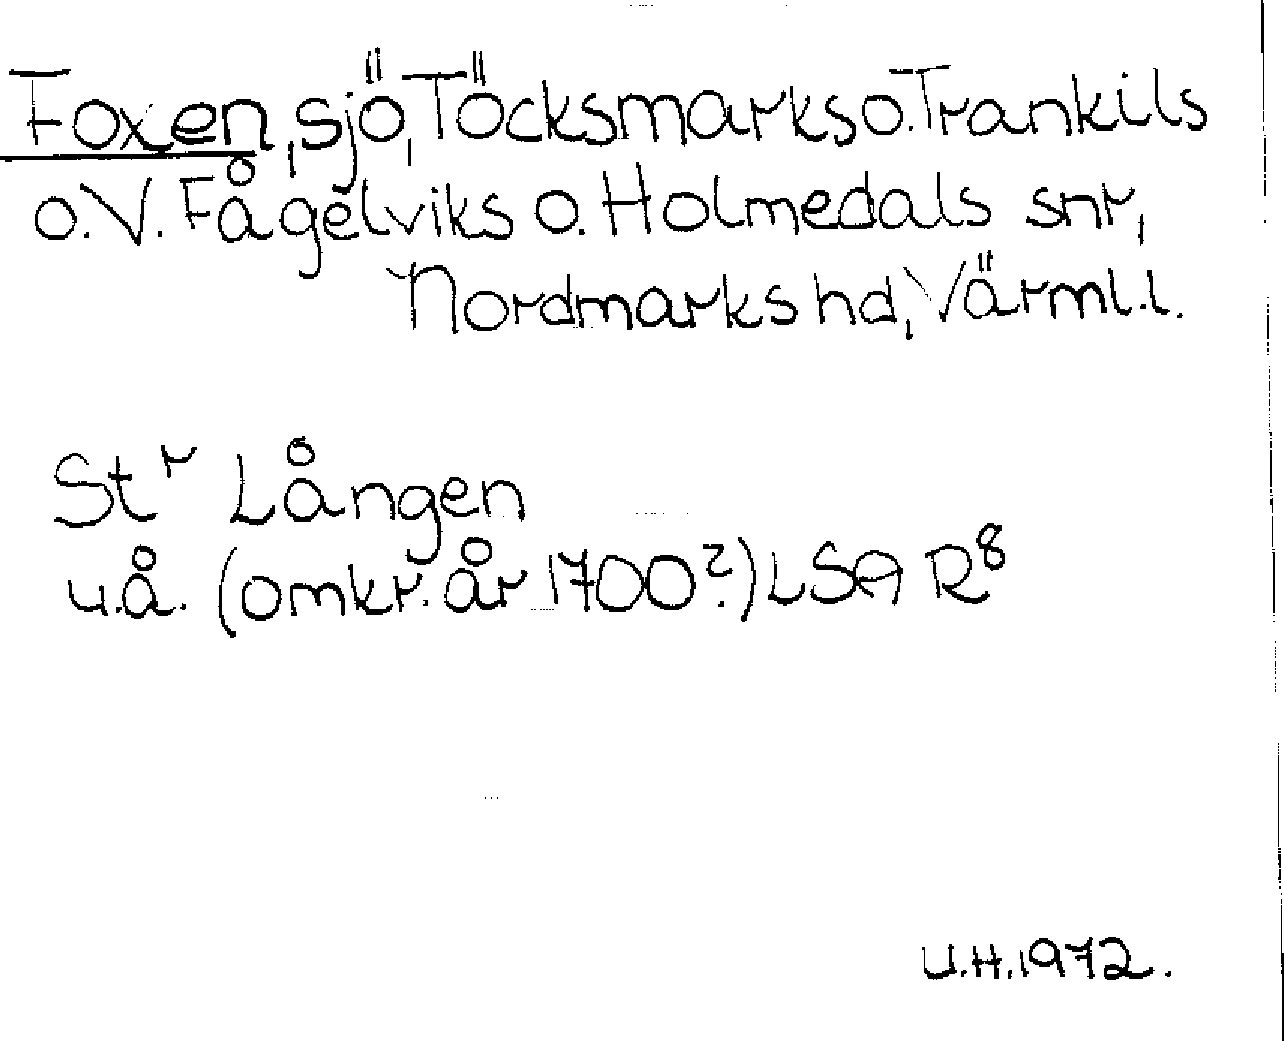 Foxen, sjö, Töcksmarks o. Trankils
o. V. Fågelviks o. Holmedals snr,
Nordmarks hd, Värml. l.
St ͬ Lången
u.å. (omkr. år 1700?) LSA R⁸
U.H. 1972.